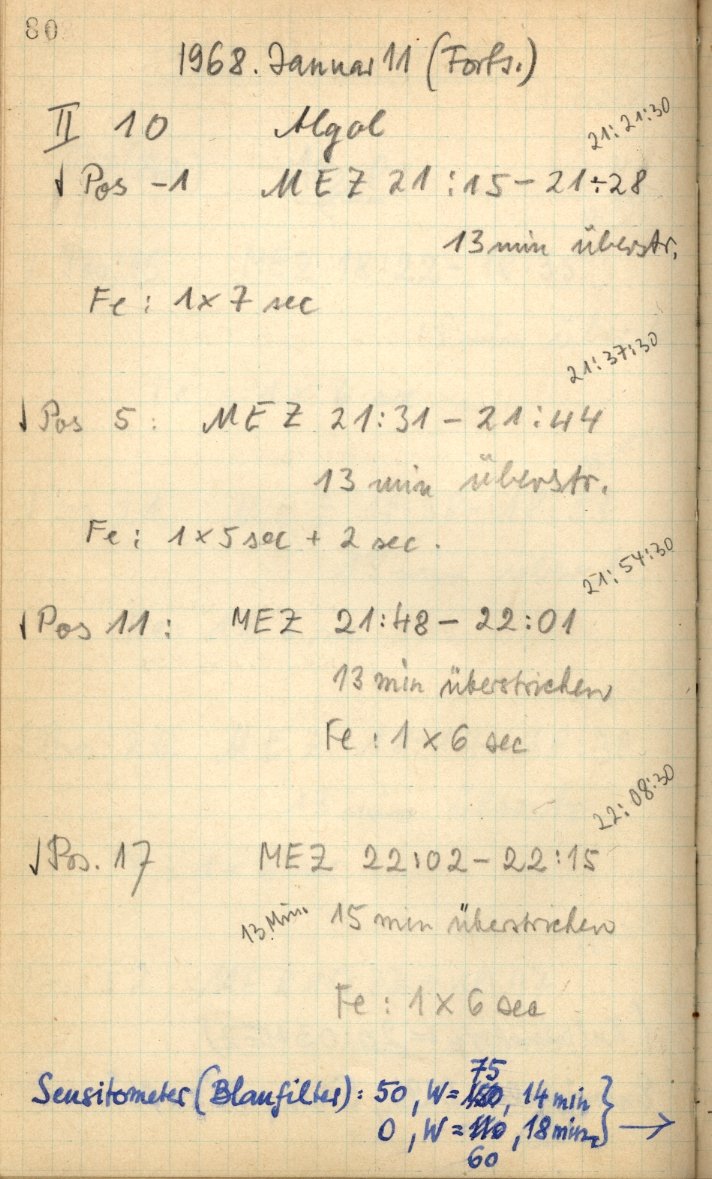 80
1968. Januar 11 (Forts.)
II 10 Algol
21:21:30
√ Pos -1 MEZ 21:15 - 21:28
13 min überstr.
Fe: 1x7 sec
21:37:30
√ Pos 5: MEZ 21:31 - 21:44
13 min überstr.
Fe: 1x5 sec + 2 sec.
21:54:30
√ Pos 11: MEZ 21:48 - 22:01
13 min überstrichen
Fe: 1x6 sec
22:08:30
√ Pos. 17 MEZ 22:02 - 22:15
13 Min. 15 min überstrichen
Fe: 1x6 sec
75
Sensitometer (Blaufilter): 50, W = 150, 14 min }
0, W = 110, 18 min } →
60